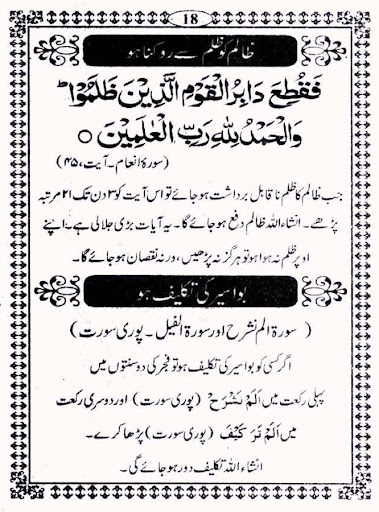 18
ظالم کو ظلم سے روکنا ہو
فَقُطِعَ دَابِرُ الْقَوْمِ الَّذِیْنَ ظَلَمُوْا ؕ
وَالْحَمْدُ لِلّٰهِ رَبِّ الْعٰلَمِیْنَ ○
(سورۂ انعام۔ آیت، ۴۵)
جب ظالم کا ظلم نا قابل برداشت ہو جائے تو اس آیت کو ۳ دن تک ۲۱ مرتبہ
پڑھے۔ انشاء اللہ ظالم دفع ہو جائے گا۔ یہ آیات بڑی جلالی ہے۔ اپنے
اوپر ظلم نہ ہوا ہو تو ہرگز نہ پڑھیں، ورنہ نقصان ہو جائے گا۔
بواسیر کی تکلیف ہو
(سورۃ الم نشرح اور سورۃ الفیل۔ پوری سورت)
اگر کسی کو بواسیر کی تکلیف ہو تو فجر کی دو سنتوں میں
پہلی رکعت میں اَلَمْ نَشْرَحْ (پوری سورت) اور دوسری رکعت
میں اَلَمْ تَرَ كَيْفَ (پوری سورت) پڑھا کرے۔
انشاء اللہ تکلیف دور ہو جائے گی۔